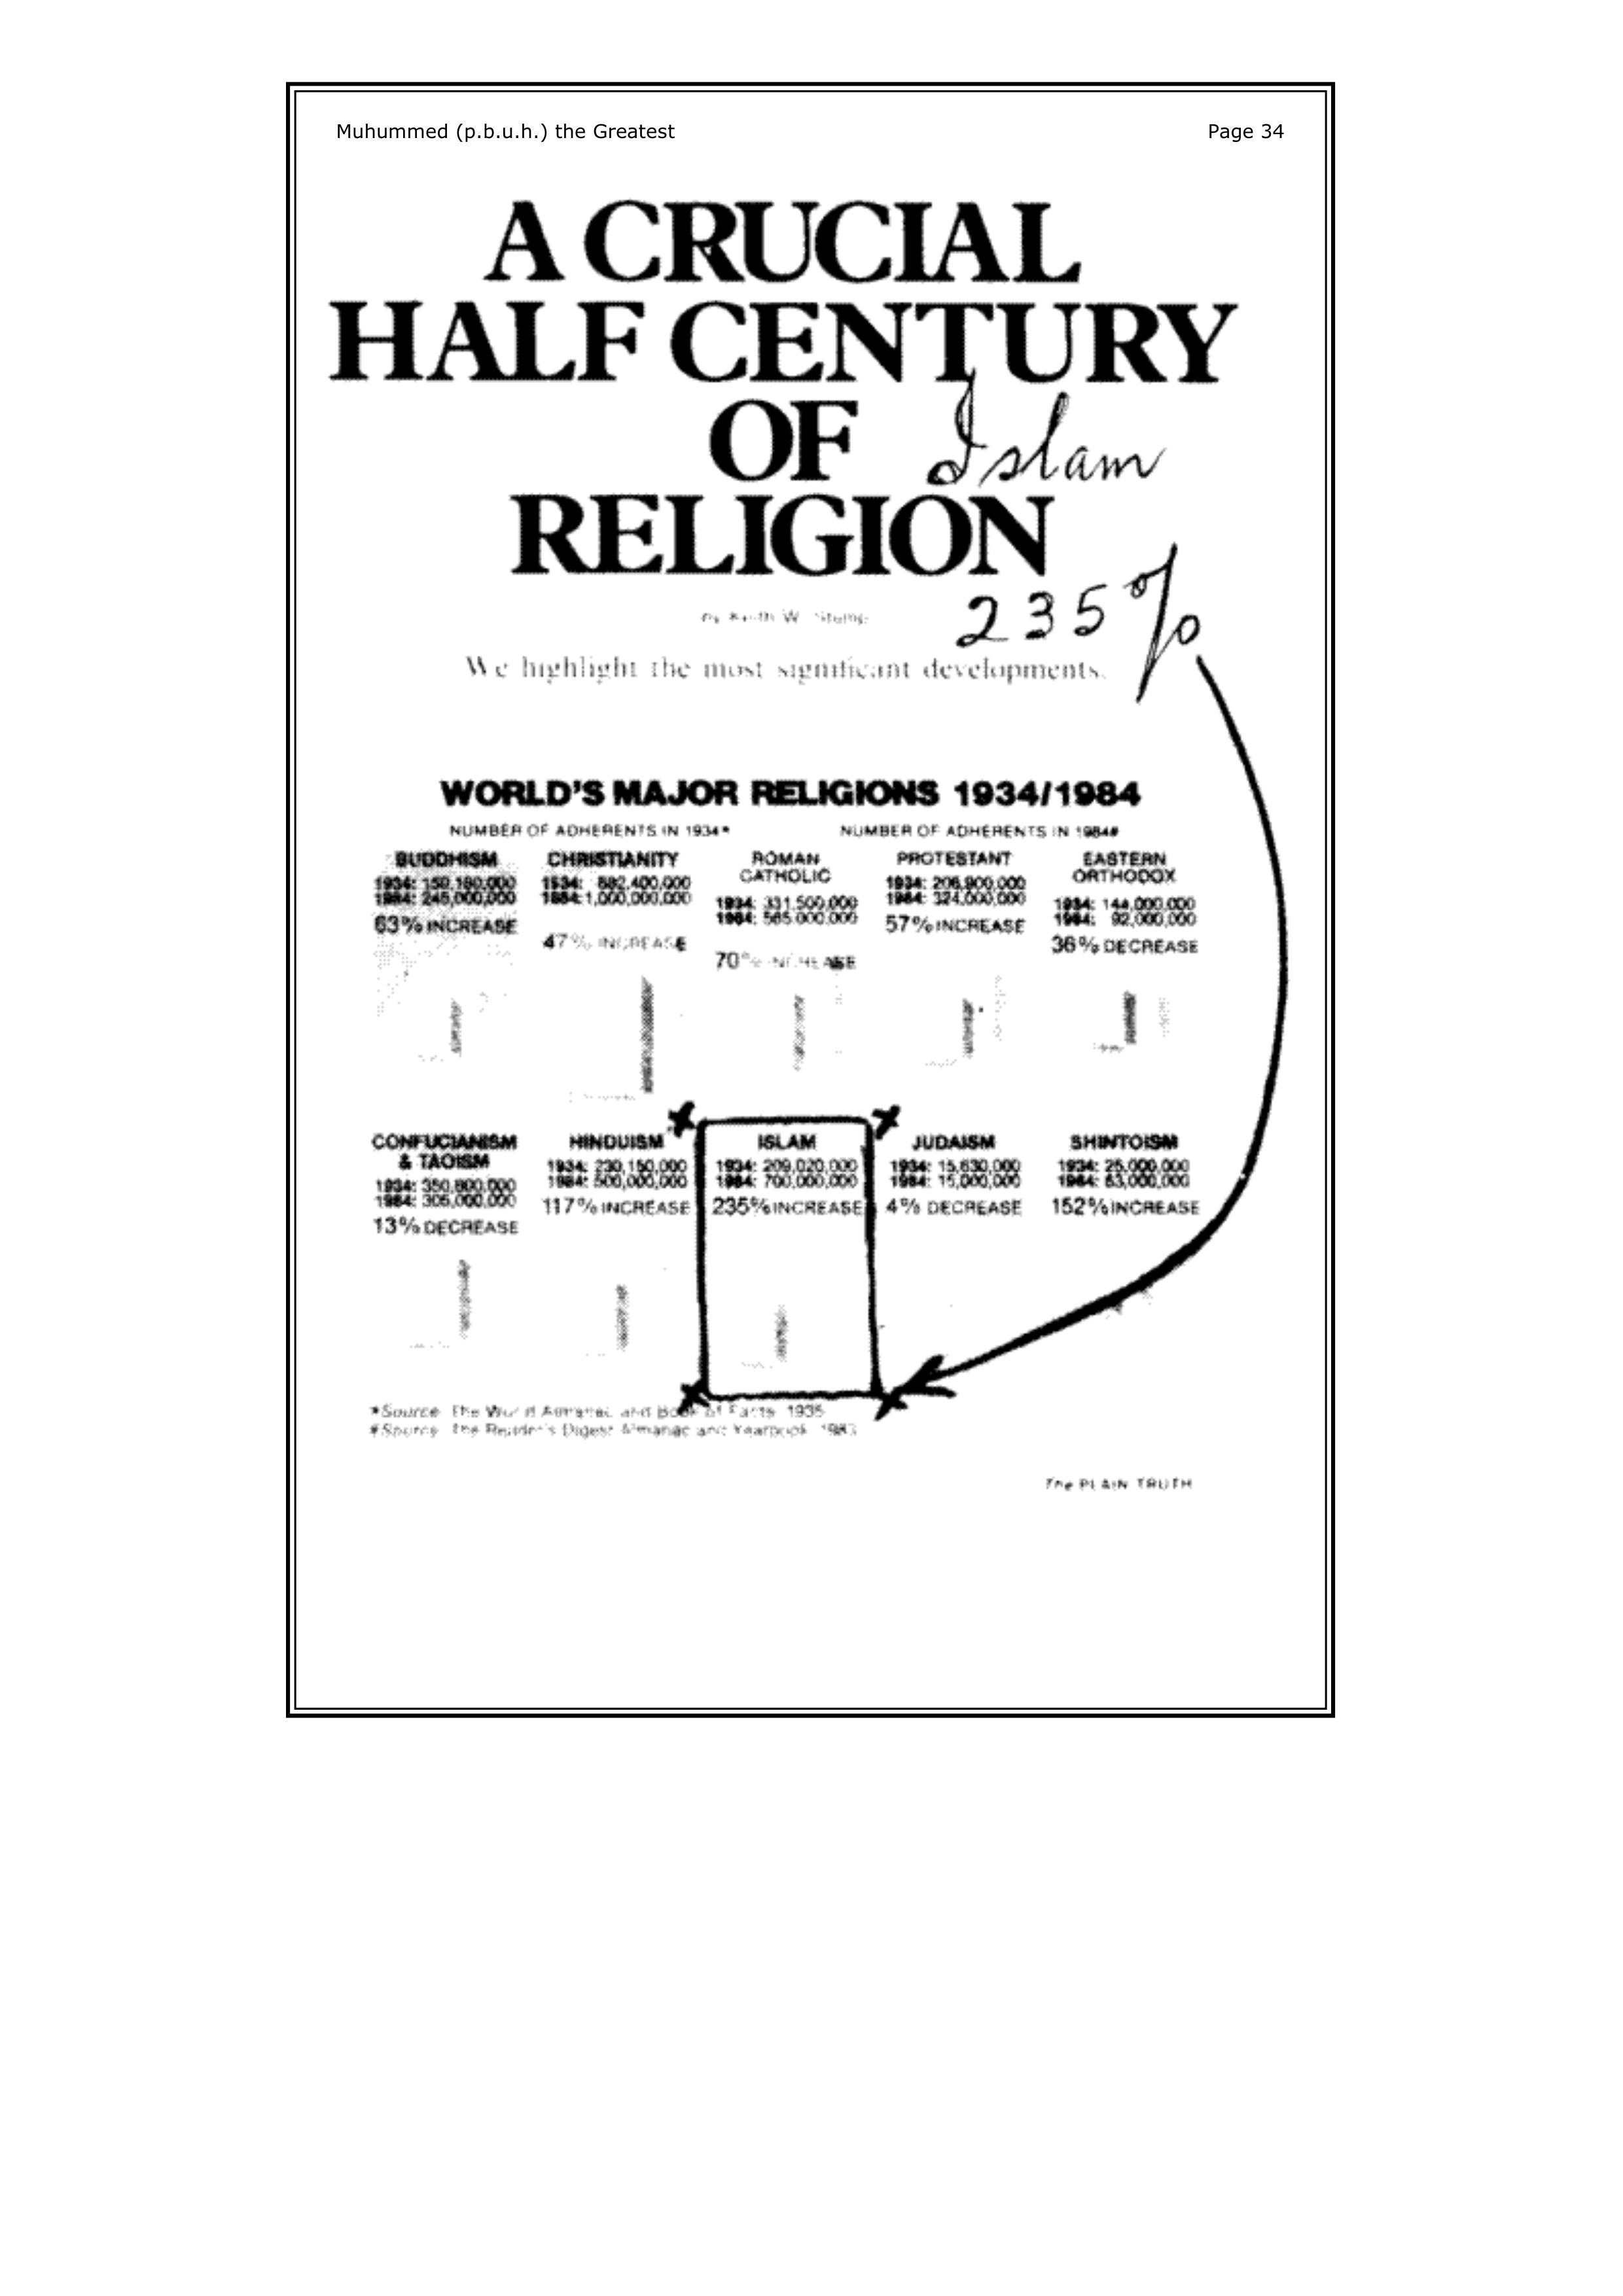 Muhummed (p.b.u.h.) the Greatest Page 34
A CRUCIAL
HALF CENTURY
OF Islam
RELIGION
235%
by Keith W. Stump
We highlight the most significant developments.
WORLD'S MAJOR RELIGIONS 1934/1984
NUMBER OF ADHERENTS IN 1934* NUMBER OF ADHERENTS IN 1984#
BUDDHISM
1934: 150,180,000
1984: 245,000,000
63% INCREASE
CHRISTIANITY
1934: 682,400,000
1984: 1,000,000,000
47% INCREASE
ROMAN
CATHOLIC
1934: 331,500,000
1984: 565,000,000
70% INCREASE
PROTESTANT
1934: 206,900,000
1984: 324,000,000
57% INCREASE
EASTERN
ORTHODOX
1934: 144,000,000
1984: 92,000,000
36% DECREASE
CONFUCIANISM
& TAOISM
1934: 350,600,000
1984: 305,000,000
13% DECREASE
HINDUISM
1934: 230,150,000
1984: 500,000,000
117% INCREASE
ISLAM
1934: 209,020,000
1984: 700,000,000
235% INCREASE
JUDAISM
1934: 15,630,000
1984: 15,000,000
4% DECREASE
SHINTOISM
1934: 25,000,000
1984: 63,000,000
152% INCREASE
*Source: The World Almanac and Book of Facts 1935
#Source: The Reader's Digest Almanac and Yearbook 1983
The PLAIN TRUTH